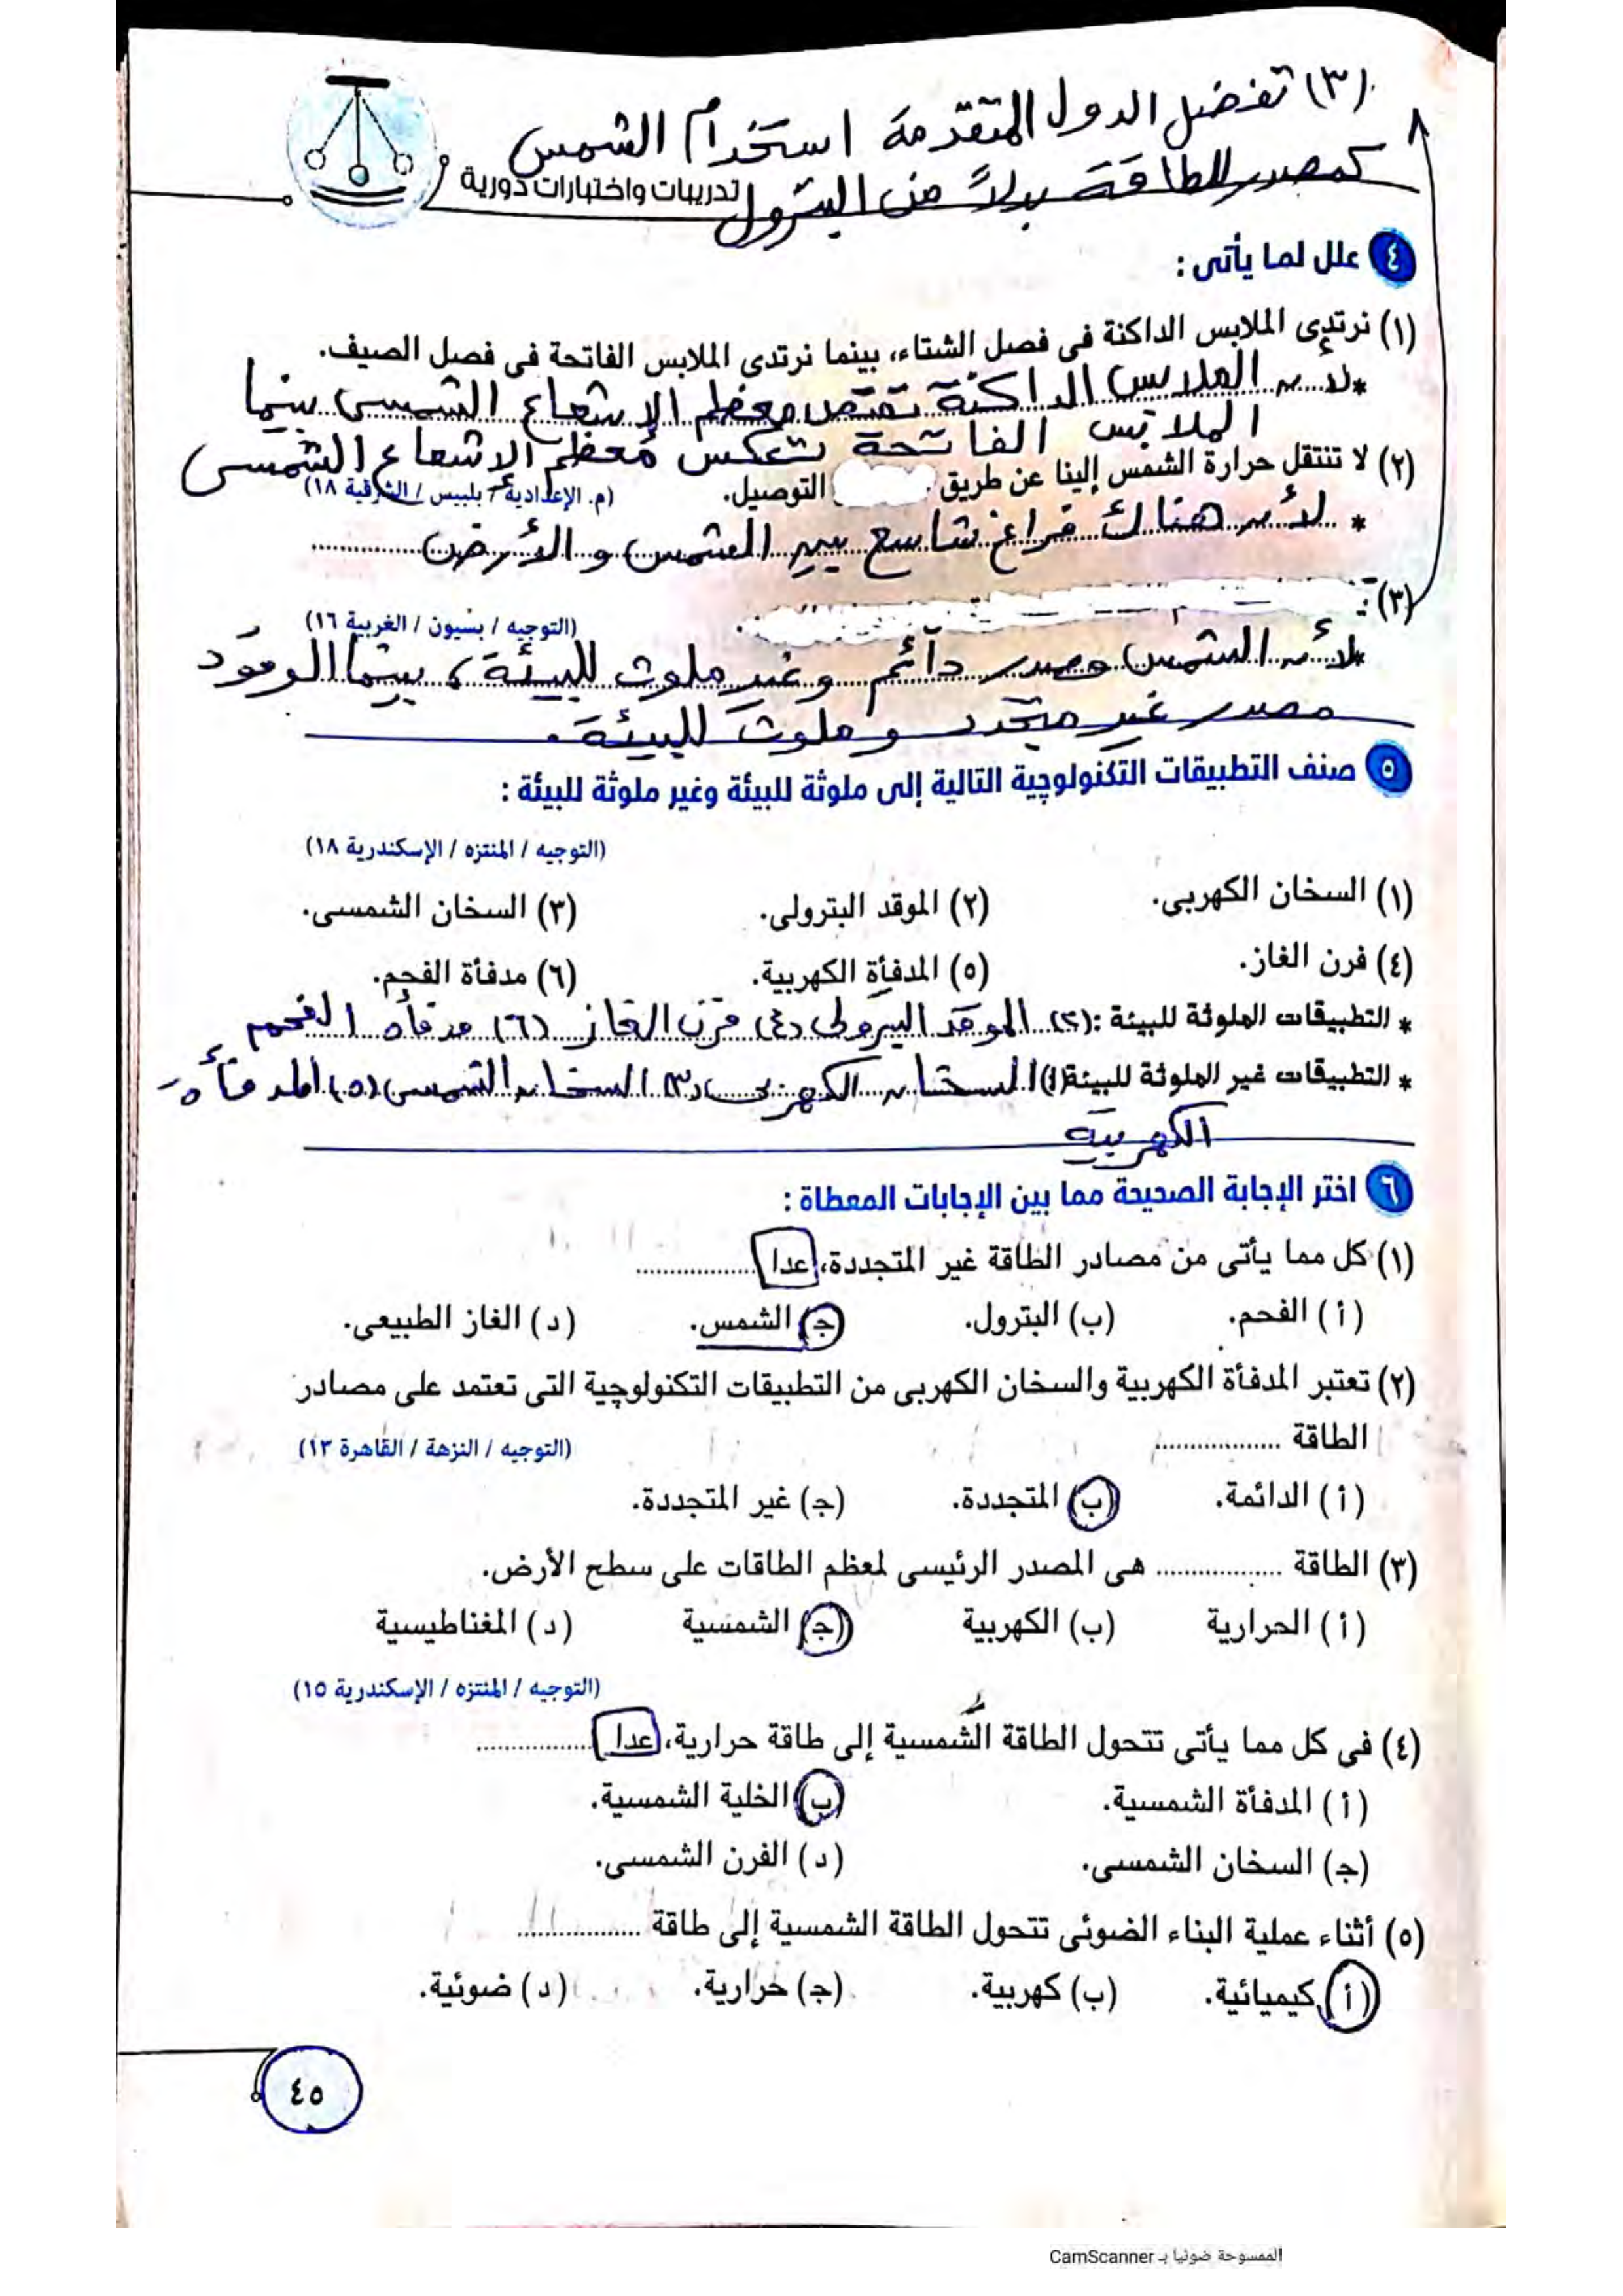 (٣) تفضل الدول المتقدمة استخدام الشمس
كمصدر للطاقة بدلاً من البترول
تدريبات واختبارات دورية
٤ علل لما يأتى :
(١) نرتدى الملابس الداكنة فى فصل الشتاء، بينما نرتدى الملابس الفاتحة فى فصل الصيف.
* لأن الملابس الداكنة تمتص معظم الإشعاع الشمسى بينما
الملابس الفاتحة تعكس معظم الإشعاع الشمسى
(٢) لا تنتقل حرارة الشمس إلينا عن طريق التوصيل.
(م. الإعدادية / بلبيس / الشرقية ١٨)
* لأن هناك فراغ شاسع بين الشمس والأرض
(٣)
(التوجيه / بسيون / الغربية ١٦)
* لأن الشمس مصدر دائم وغير ملوث للبيئة، بينما الوقود
مصدر غير متجدد وملوث للبيئة.
٥ صنف التطبيقات التكنولوچية التالية إلى ملوثة للبيئة وغير ملوثة للبيئة :
(التوجيه / المنتزه / الإسكندرية ١٨)
(١) السخان الكهربى. (٢) الموقد البترولى. (٣) السخان الشمسى.
(٤) فرن الغاز. (٥) المدفأة الكهربية. (٦) مدفأة الفحم.
* التطبيقات الملوثة للبيئة : (٢) الموقد البترولى (٤) فرن الغاز (٦) مدفأه الفحم
* التطبيقات غير الملوثة للبيئة (١) السخان الكهربى (٣) السخان الشمسى (٥) المدفأه
الكهربية
٦ اختر الإجابة الصحيحة مما بين الإجابات المعطاة :
(١) كل مما يأتى من مصادر الطاقة غير المتجددة، عدا .................
(أ) الفحم. (ب) البترول. (ج) الشمس. (د) الغاز الطبيعى.
(٢) تعتبر المدفأة الكهربية والسخان الكهربى من التطبيقات التكنولوچية التى تعتمد على مصادر
الطاقة .................
(التوجيه / النزهة / القاهرة ١٣)
(أ) الدائمة. (ب) المتجددة. (ج) غير المتجددة.
(٣) الطاقة ................. هى المصدر الرئيسى لمعظم الطاقات على سطح الأرض.
(أ) الحرارية (ب) الكهربية (ج) الشمسية (د) المغناطيسية
(التوجيه / المنتزه / الإسكندرية ١٥)
(٤) فى كل مما يأتى تتحول الطاقة الشمسية إلى طاقة حرارية، عدا .................
(أ) المدفأة الشمسية. (ب) الخلية الشمسية.
(ج) السخان الشمسى. (د) الفرن الشمسى.
(٥) أثناء عملية البناء الضوئى تتحول الطاقة الشمسية إلى طاقة .................
(أ) كيميائية. (ب) كهربية. (ج) حرارية. (د) ضوئية.
٤٥
الممسوحة ضوئيا بـ CamScanner